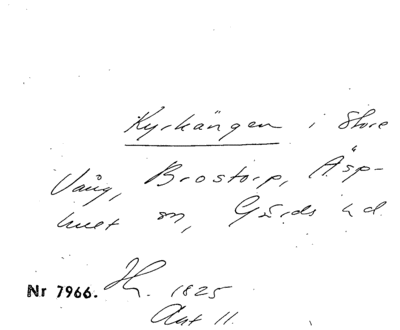 Kyrkängen i Store
Vång, Brostorp, Äsp-
huet sn, Gärds hd.
Nr 7966. H. 1825
Akt 11.